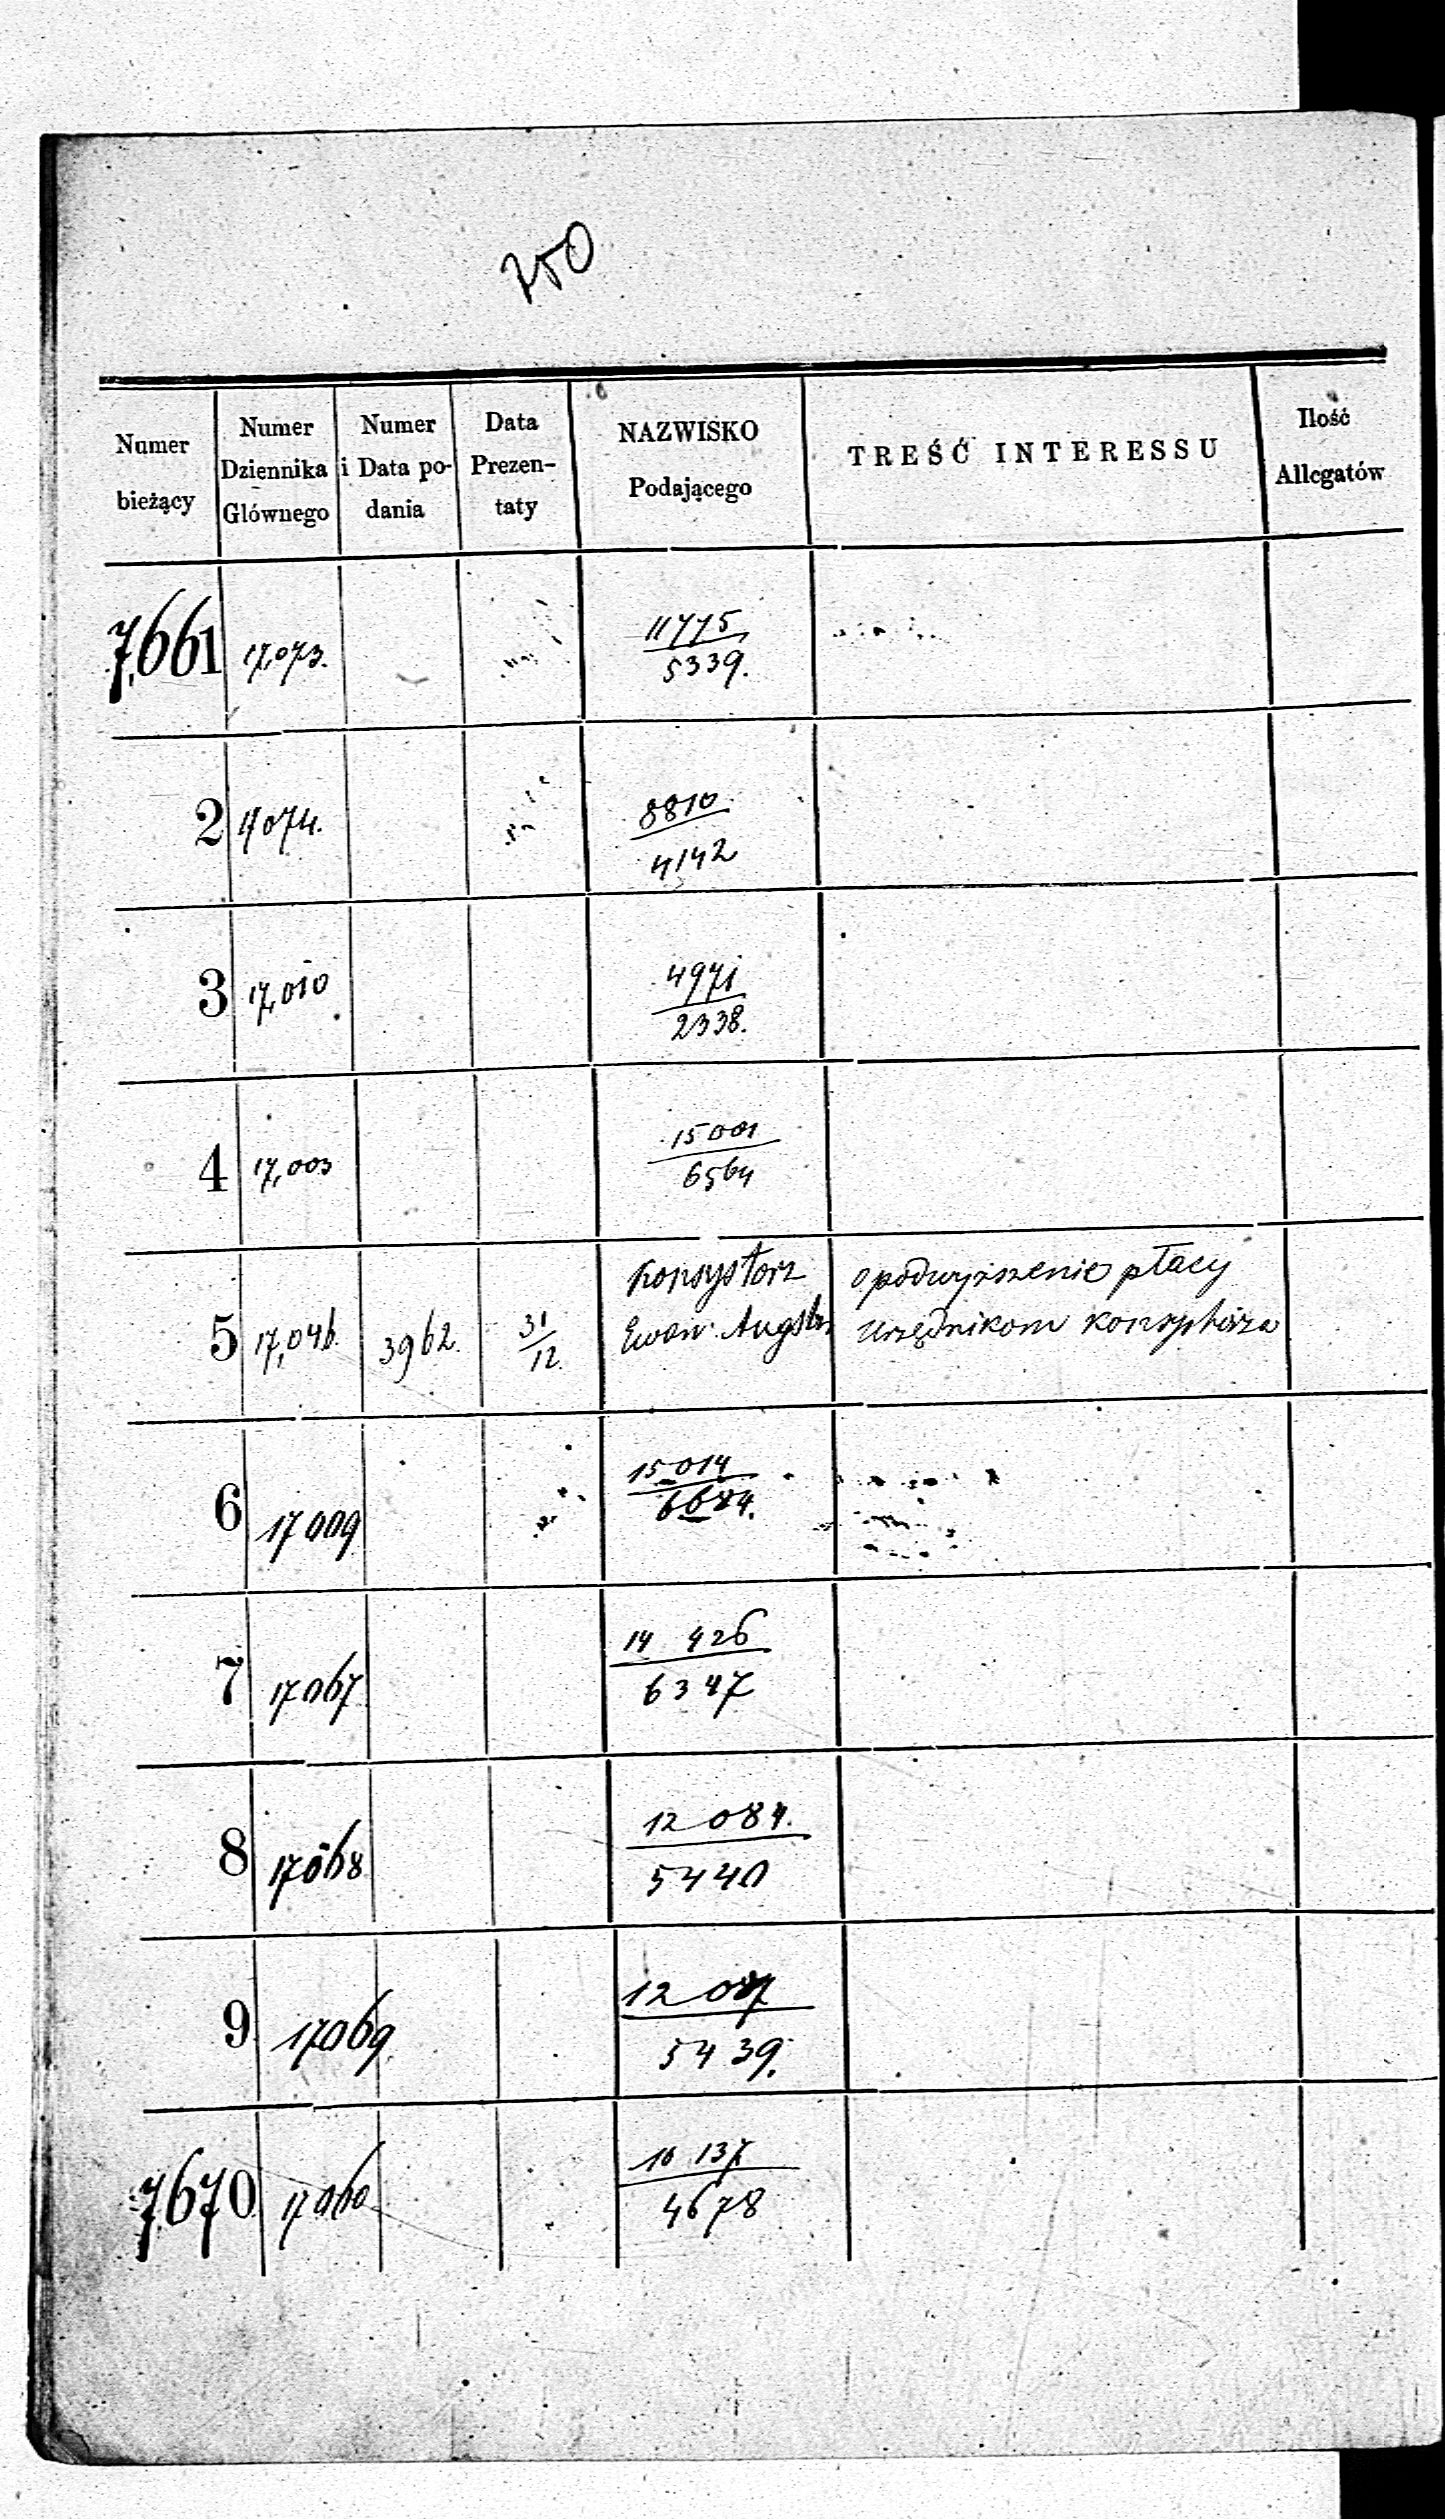 750
Numer bieżący | Numer Dziennika Głównego | Numer i Data podania | Data Prezentaty | NAZWISKO Podającego | TREŚĆ INTERESSU | Ilość Allegatów
7,661 17,073. 11775
5339.
2 17074. 8810
4142
3 17,010 4971
2338.
4 17,003 15001
6564
5 17,046. 3962. 31/12. Konsystorz o podwyższenie płacy
Ewan. Augsb. urzędnikom konsystorza
6 17009 15014
6674.
7 17067 14 426
6347
8 17068 12 084.
5440
9 17069. 12 087
5439.
7,670 17060 10 137
4678